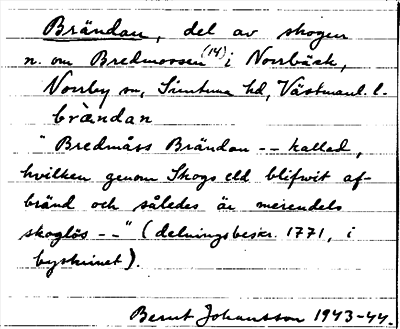 Brändan, del av skogen
n. om Bredmossen (14) i Norrbäck,
Norrby sn, Simtuna hd, Västmanl. l.
brǟndan
"Bredmåss Brändan -- kallad,
hvilken genom Skogs eld blifwit af-
bränd och således är merendels
skoglös --" (delningsbeskr. 1771, i
byskrinet).
Bernt Johansson 1943-44.